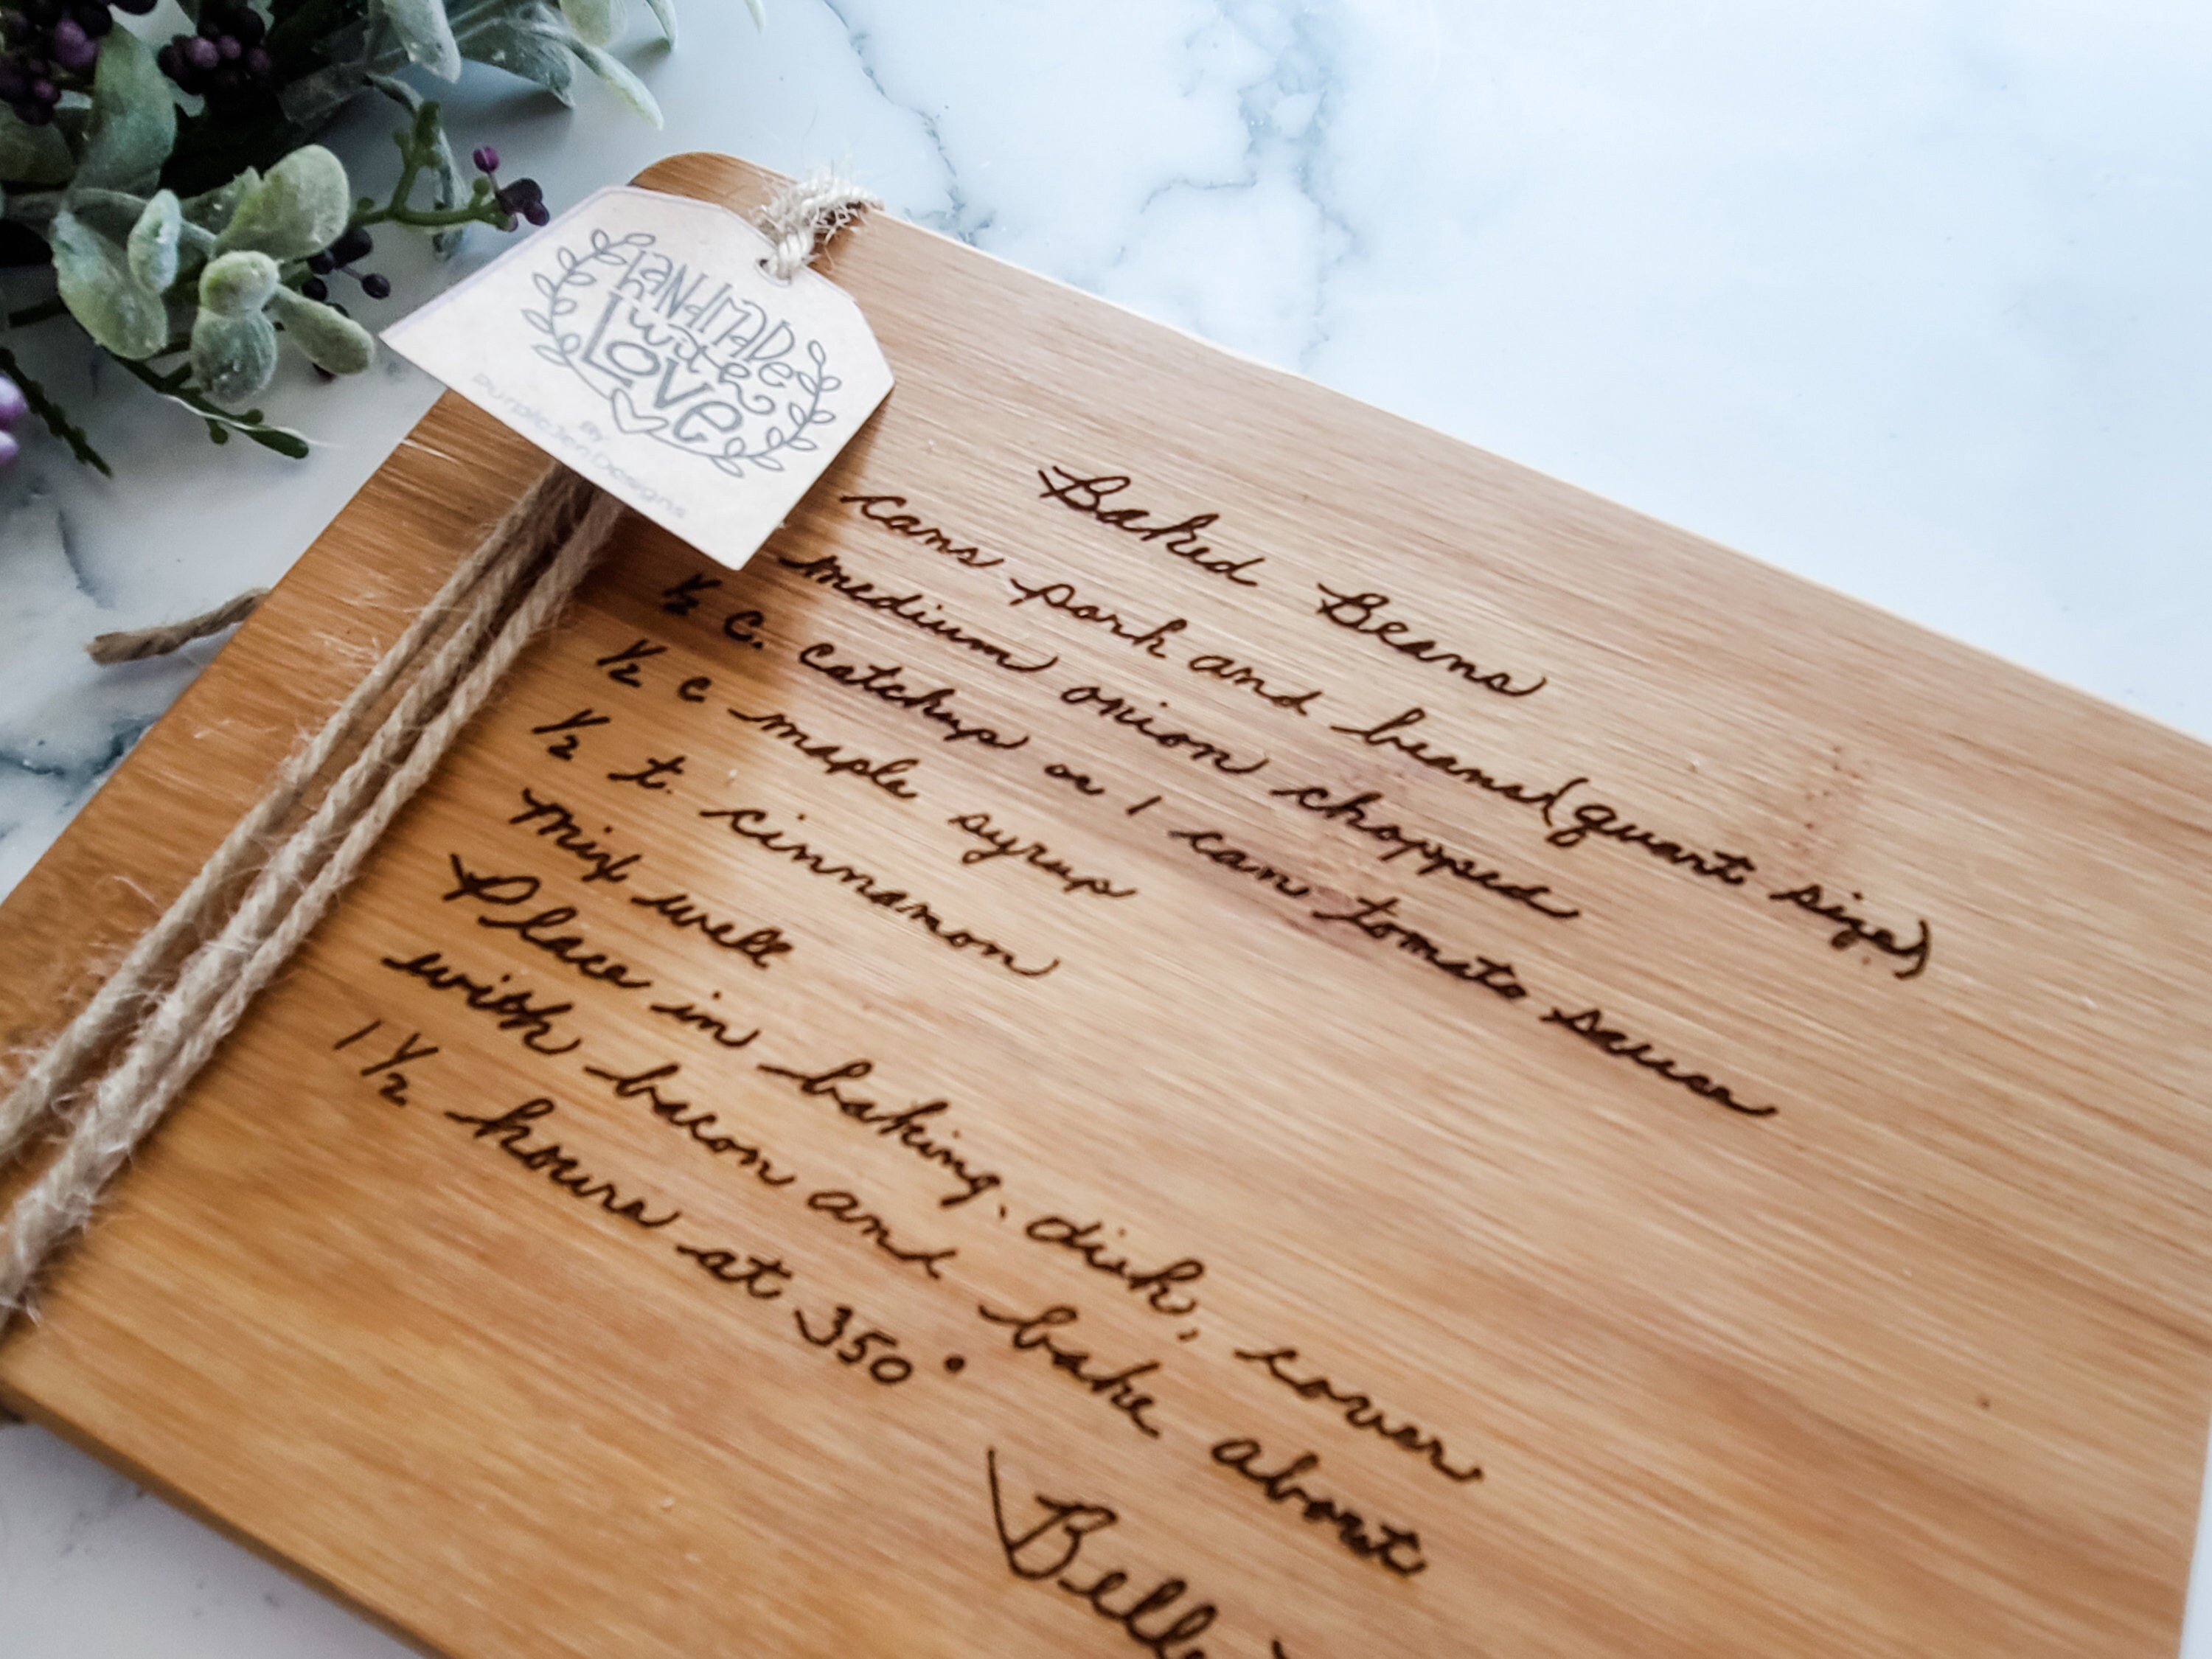 HANdMADe
with
Love
By
PurpleJen Designs
Baked Beans
cans pork and beans (quart size)
medium onion chopped
1/2 c. catchup or 1 can tomato sauce
1/2 c maple syrup
1/2 t. cinnamon
Mix well
Place in baking dish, cover
with bacon and bake about
1 1/2 hours at 350°
Belle